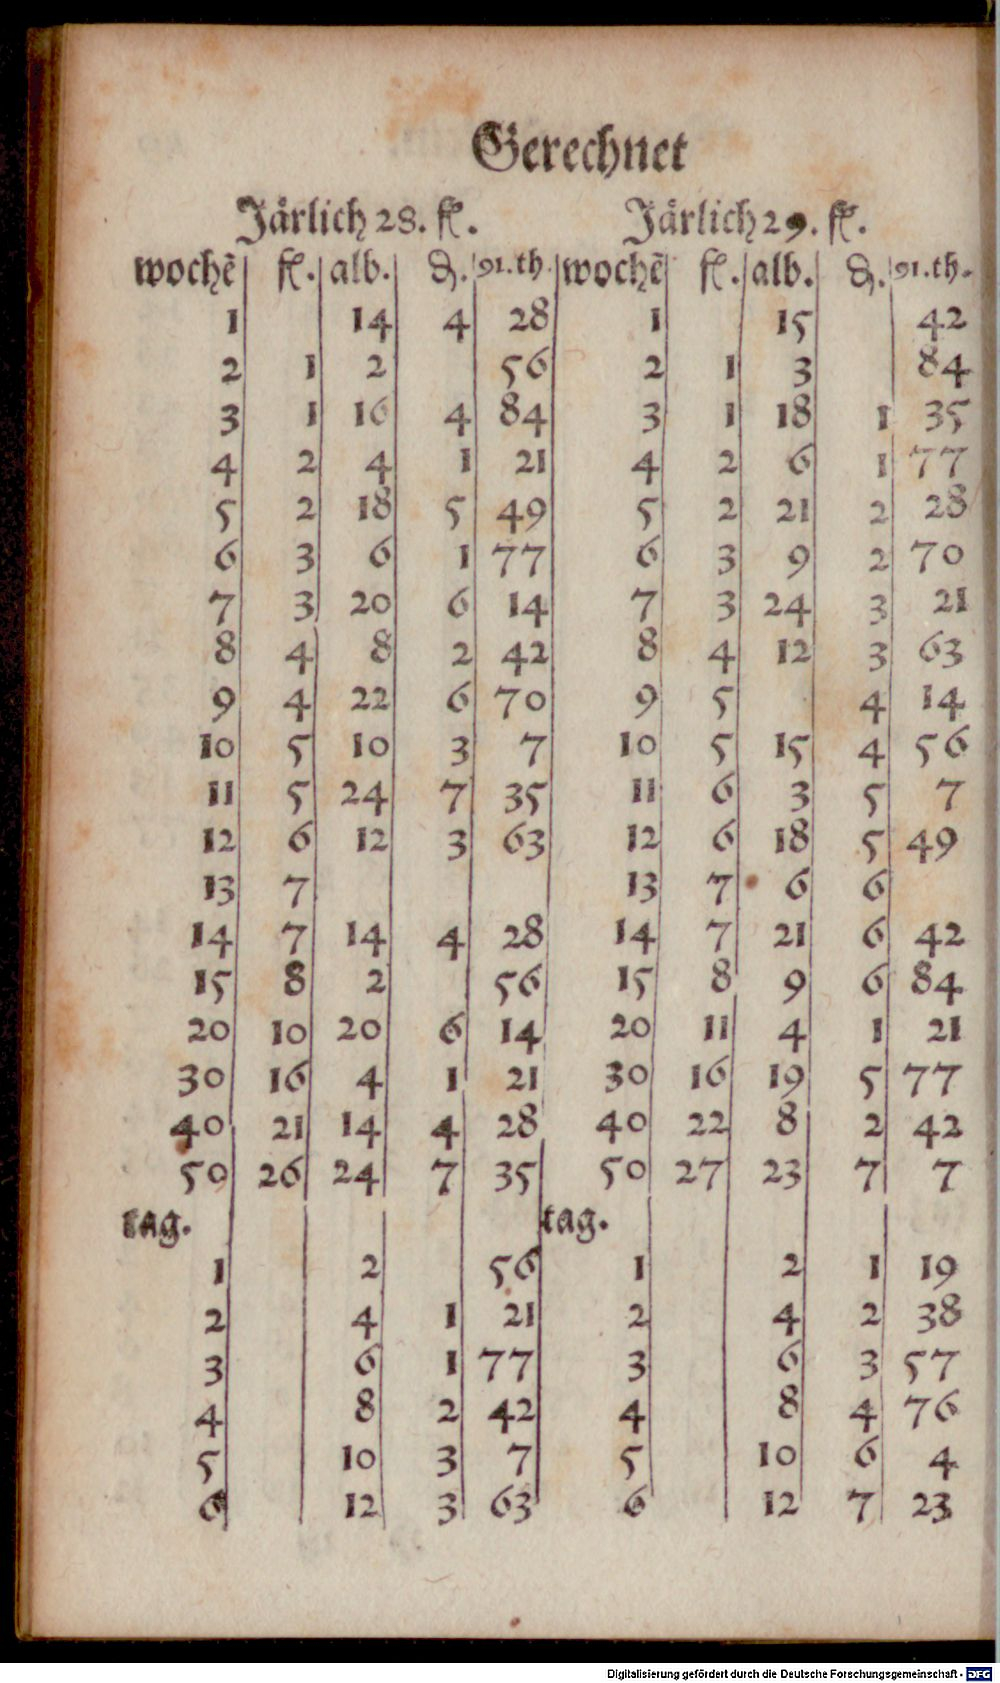 Gerechnet
Jårlich 28. fl. Jårlich 29. fl.
wochẽ fl. alb. ₰. 91.th. wochẽ fl. alb. ₰. 91.th.
1 14 4 28 1 15 42
2 1 2 56 2 1 3 84
3 1 16 4 84 3 1 18 1 35
4 2 4 1 21 4 2 6 1 77
5 2 18 5 49 5 2 21 2 28
6 3 6 1 77 6 3 9 2 70
7 3 20 6 14 7 3 24 3 21
8 4 8 2 42 8 4 12 3 63
9 4 22 6 70 9 5 4 14
10 5 10 3 7 10 5 15 4 56
11 5 24 7 35 11 6 3 5 7
12 6 12 3 63 12 6 18 5 49
13 7 13 7 6 6
14 7 14 4 28 14 7 21 6 42
15 8 2 56 15 8 9 6 84
20 10 20 6 14 20 11 4 1 21
30 16 4 1 21 30 16 19 5 77
40 21 14 4 28 40 22 8 2 42
50 26 24 7 35 50 27 23 7 7
tag. tag.
1 2 56 1 2 1 19
2 4 1 21 2 4 2 38
3 6 1 77 3 6 3 57
4 8 2 42 4 8 4 76
5 10 3 7 5 10 6 4
6 12 3 63 6 12 7 23
Digitalisierung gefördert durch die Deutsche Forschungsgemeinschaft - DFG